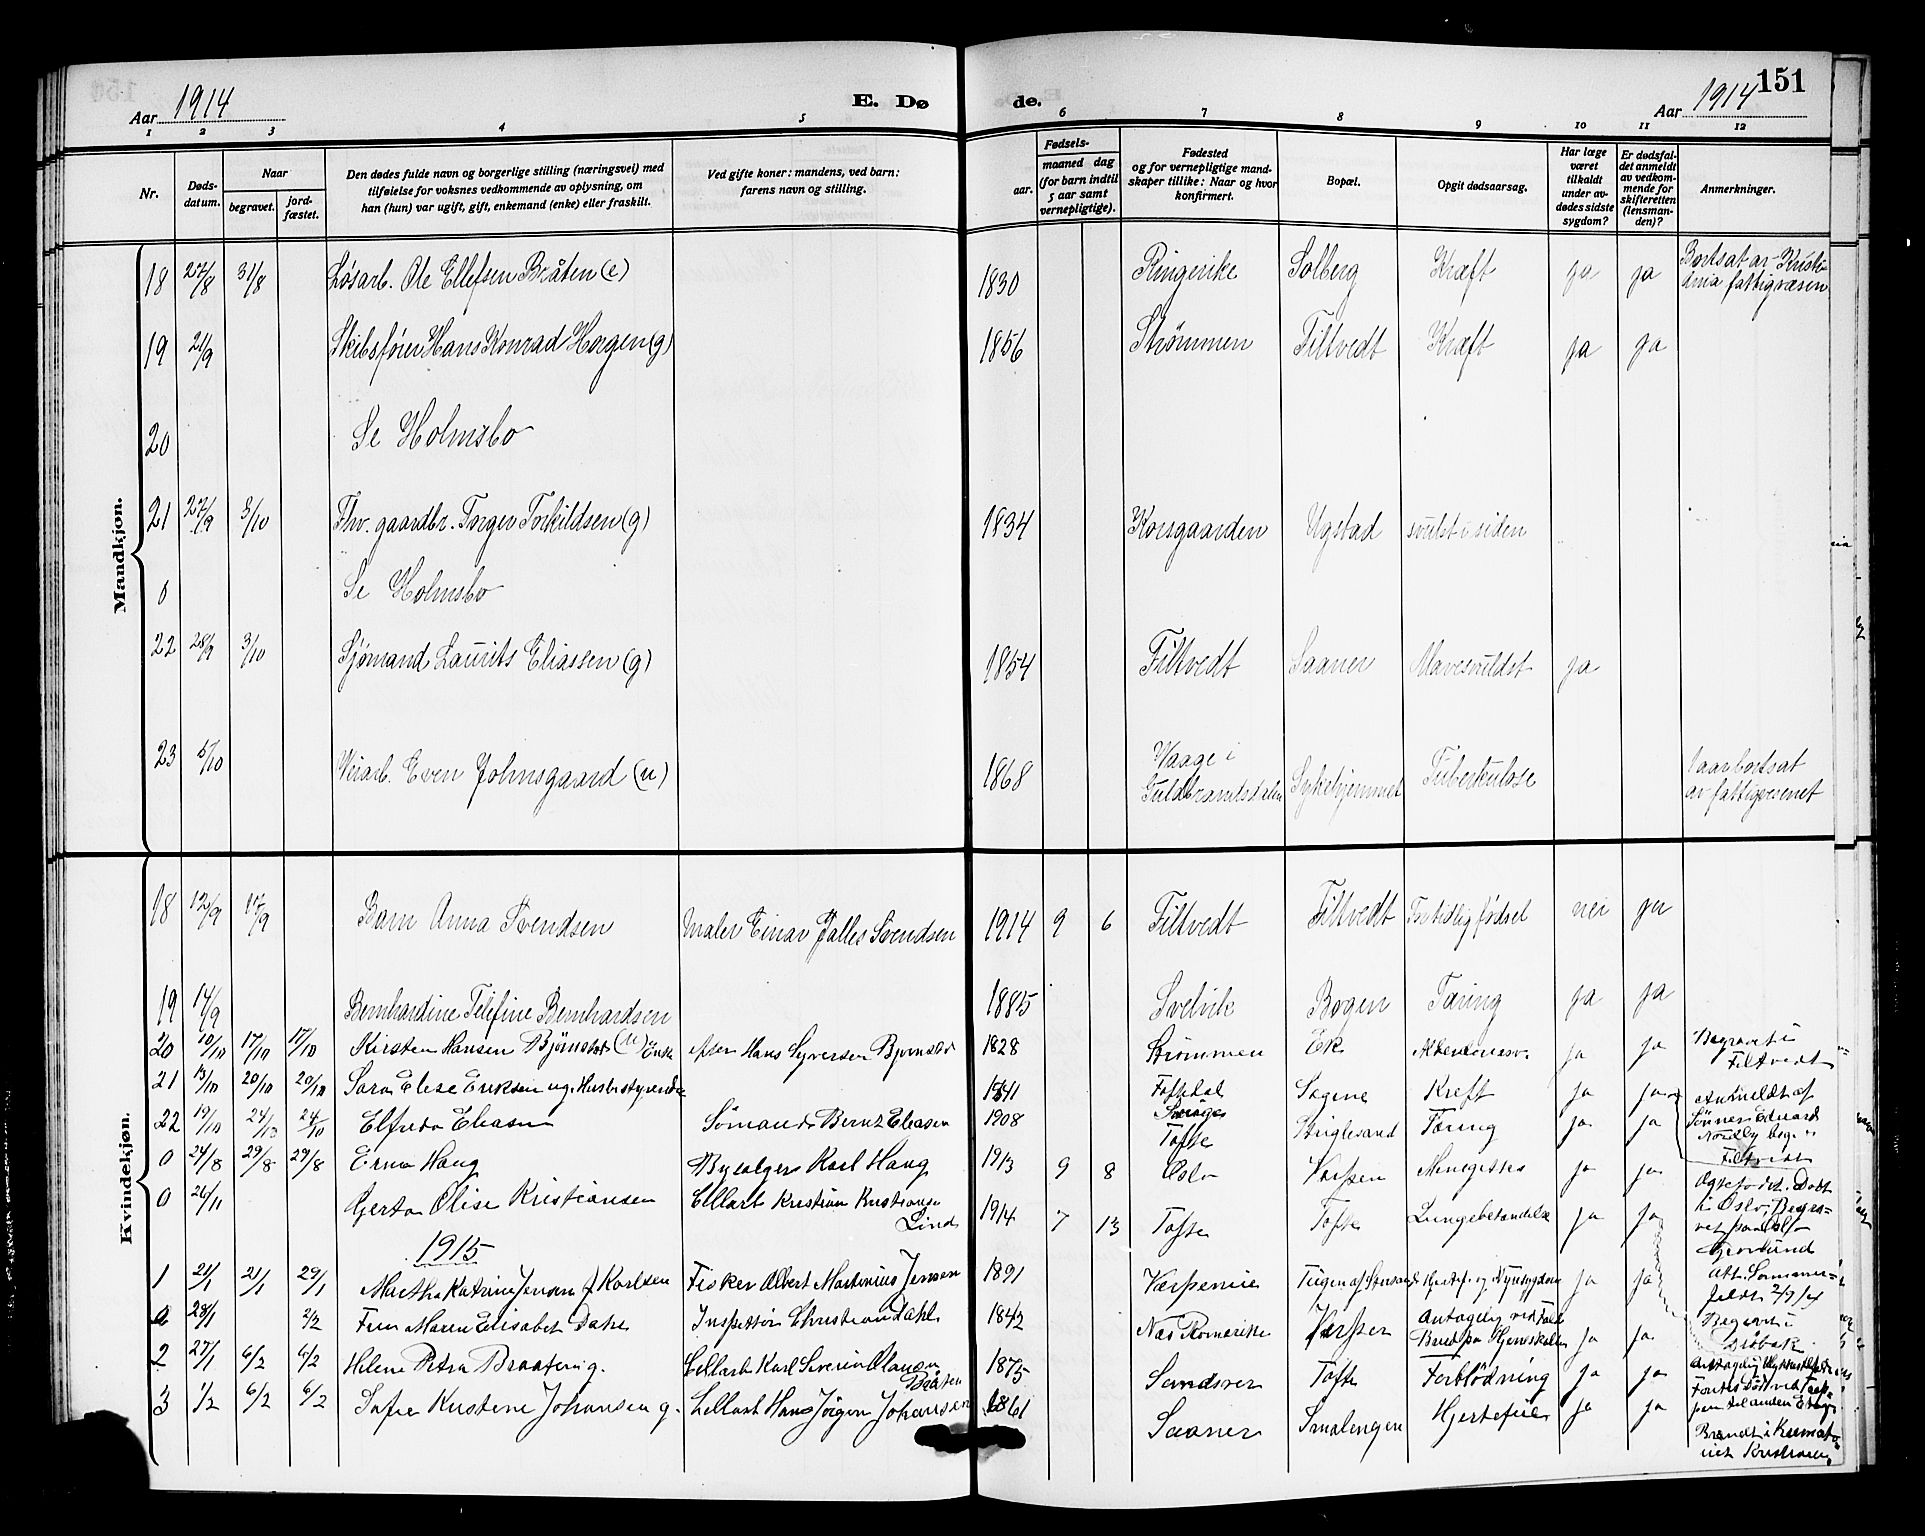 Aar 1914
E. Dø
de.
Aar 1914
151
1 2 3 4 5 6 7 8 9 10 11 12
Nr.
Døds-
datum.
Naar
begravet.
jord-
fæstet.
Den dødes fulde navn og borgerlige stilling (næringsvei) med
tilføielse for voksnes vedkommende av oplysning, om
han (hun) var ugift, gift, enkemand (enke) eller fraskilt.
Ved gifte koner: mandens, ved barn:
farens navn og stilling.
Fødsels-
aar.
maaned dag
(for barn indtil
5 aar samt
vernepligtige).
Fødested
og for vernepligtige mand-
skaper tillike: Naar og hvor
konfirmert.
Bopæl.
Opgit dødsaarsag.
Har læge
været
tilkaldt
under av-
dødes sidste
sygdom?
Er dødsfal-
det anmeldt
av vedkom-
mende for
skifteretten
(lensman-
den)?
Anmerkninger.
Mandkjøn.
18 27/8 31/8 Løsarb. Ole Ellefsen Bråten (e) 1830 Ringerike Solberg Kræft ja ja Bortsat av Kristi-
ania fattigvæsen
19 21/9 Skibsfører Hans Konrad Horgen (g) 1856 Strømmen Filtvedt Kræft ja ja
20 Se Holmsbo
21 27/9 3/10 Fhv. gaardbr. Torger Torkildsen (g) 1834 Korsgaarden Ugstad svulst i siden
0 Se Holmsbo
22 28/9 3/10 Sjømand Laurits Eliassen (g) 1854 Filtvedt Saaner Mavesvuldst ja
23 5/10 Veiarb. Even Johnsgaard (u) 1868 Waage i
Guldbrandsdalen Sykehjemmet Tuberkulose var bortsat
av fattigvesenet
Kvindekjøn.
18 12/9 17/9 Barn Anna Svendsen Maler Einar Palles Svendsen 1914 9 6 Filtvedt Filtvedt Fortidlig fødsel nei ja
19 14/9 Bernhardine Telefine Bernhardsen 1885 Svelvik Bogen Tæring ja ja
20 10/10 17/10 17/10 Kirsten Hansen Bjørnstad (u) Enke efter Hans Syversen Bjørnstad 1828 Strømmen Ek ja ja Begravet i
Filtvedt
21 13/10 20/10 20/10 Sara Elise Eriksen ug. Husbestyrerinde 1841 Toftedal Sagene Kreft ja ja Anmeldt af
Sønnen Edvard
Nordby beg. i
Filtvedt
22 19/10 24/10 24/10 Elfrida Eliasen Sømand Bernt Eliasen 1908 Tofte Stinglesand Tæring ja ja
0 24/8 29/8 29/8 Erna Haug Byselger Karl Haug 1913 9 8 Oslo Verpen ja ja
0 26/11 Gerta Olise Kristiansen Cellarb Kristian Kristiansen
Lind 1914 7 13 Tofte Tofte Lungebetændelse ja ja
1915
1 21/1 21/1 29/1 Martha Katrine Jensen f Karlsen Fisker Albert Martinius Jensen 1891 Verpeneie ja ja
0 28/1 2/2 Fru Maren Elisabet Dahl Inspektør Christian Dahl 1842 Nes Romerike Verpen ja ja Begravet i
Drøbak
2 27/1 6/2 6/2 Helene Petra Braaten g. Cellarb Karl Severin Olausen
Bråten 1875 Sandsver Tofte Forblødning ja ja
3 1/2 6/2 6/2 Sofie Kristine Johansen g. Cellarb Hans Jörgen Johansen 1861 Saaner Smalengen Hjertefeil ja ja